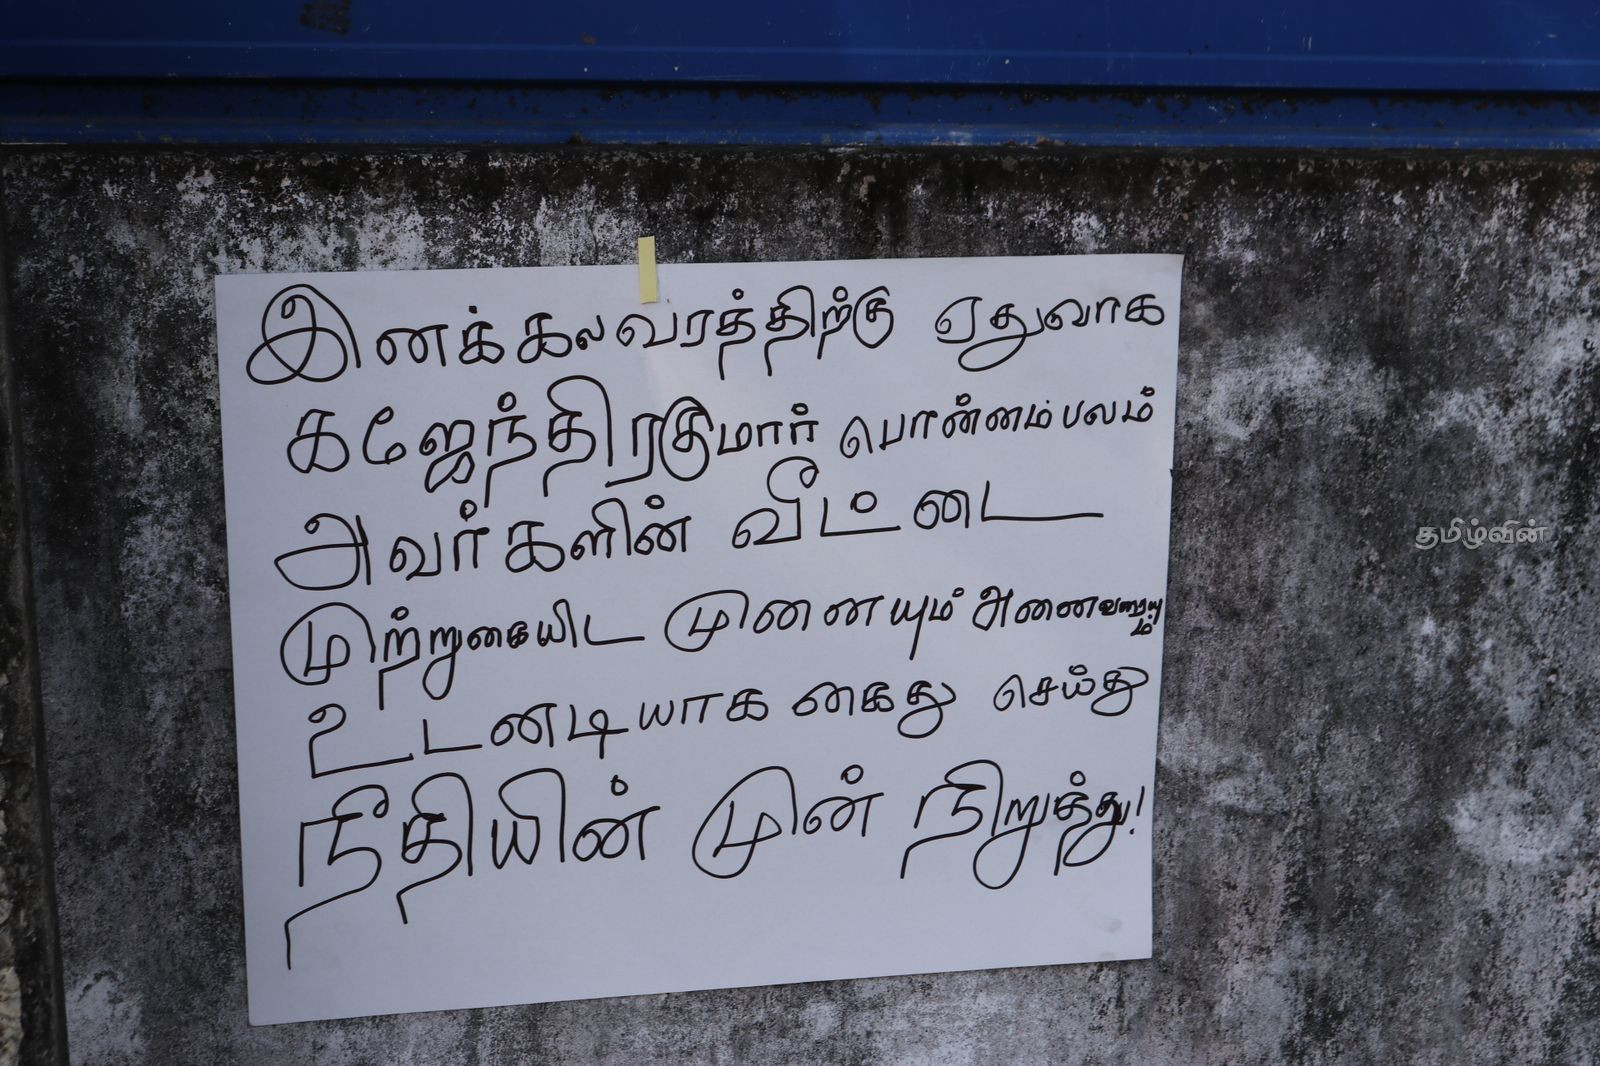 இனக்கலவரத்திற்கு ஏதுவாக
கஜேந்திரகுமார் பொன்னம்பலம்
அவர்களின் வீட்டை
முற்றுகையிட முனையும் அனைவரையும்
உடனடியாக கைது செய்து
நீதியின் முன் நிறுத்து!
தமிழ்வின்